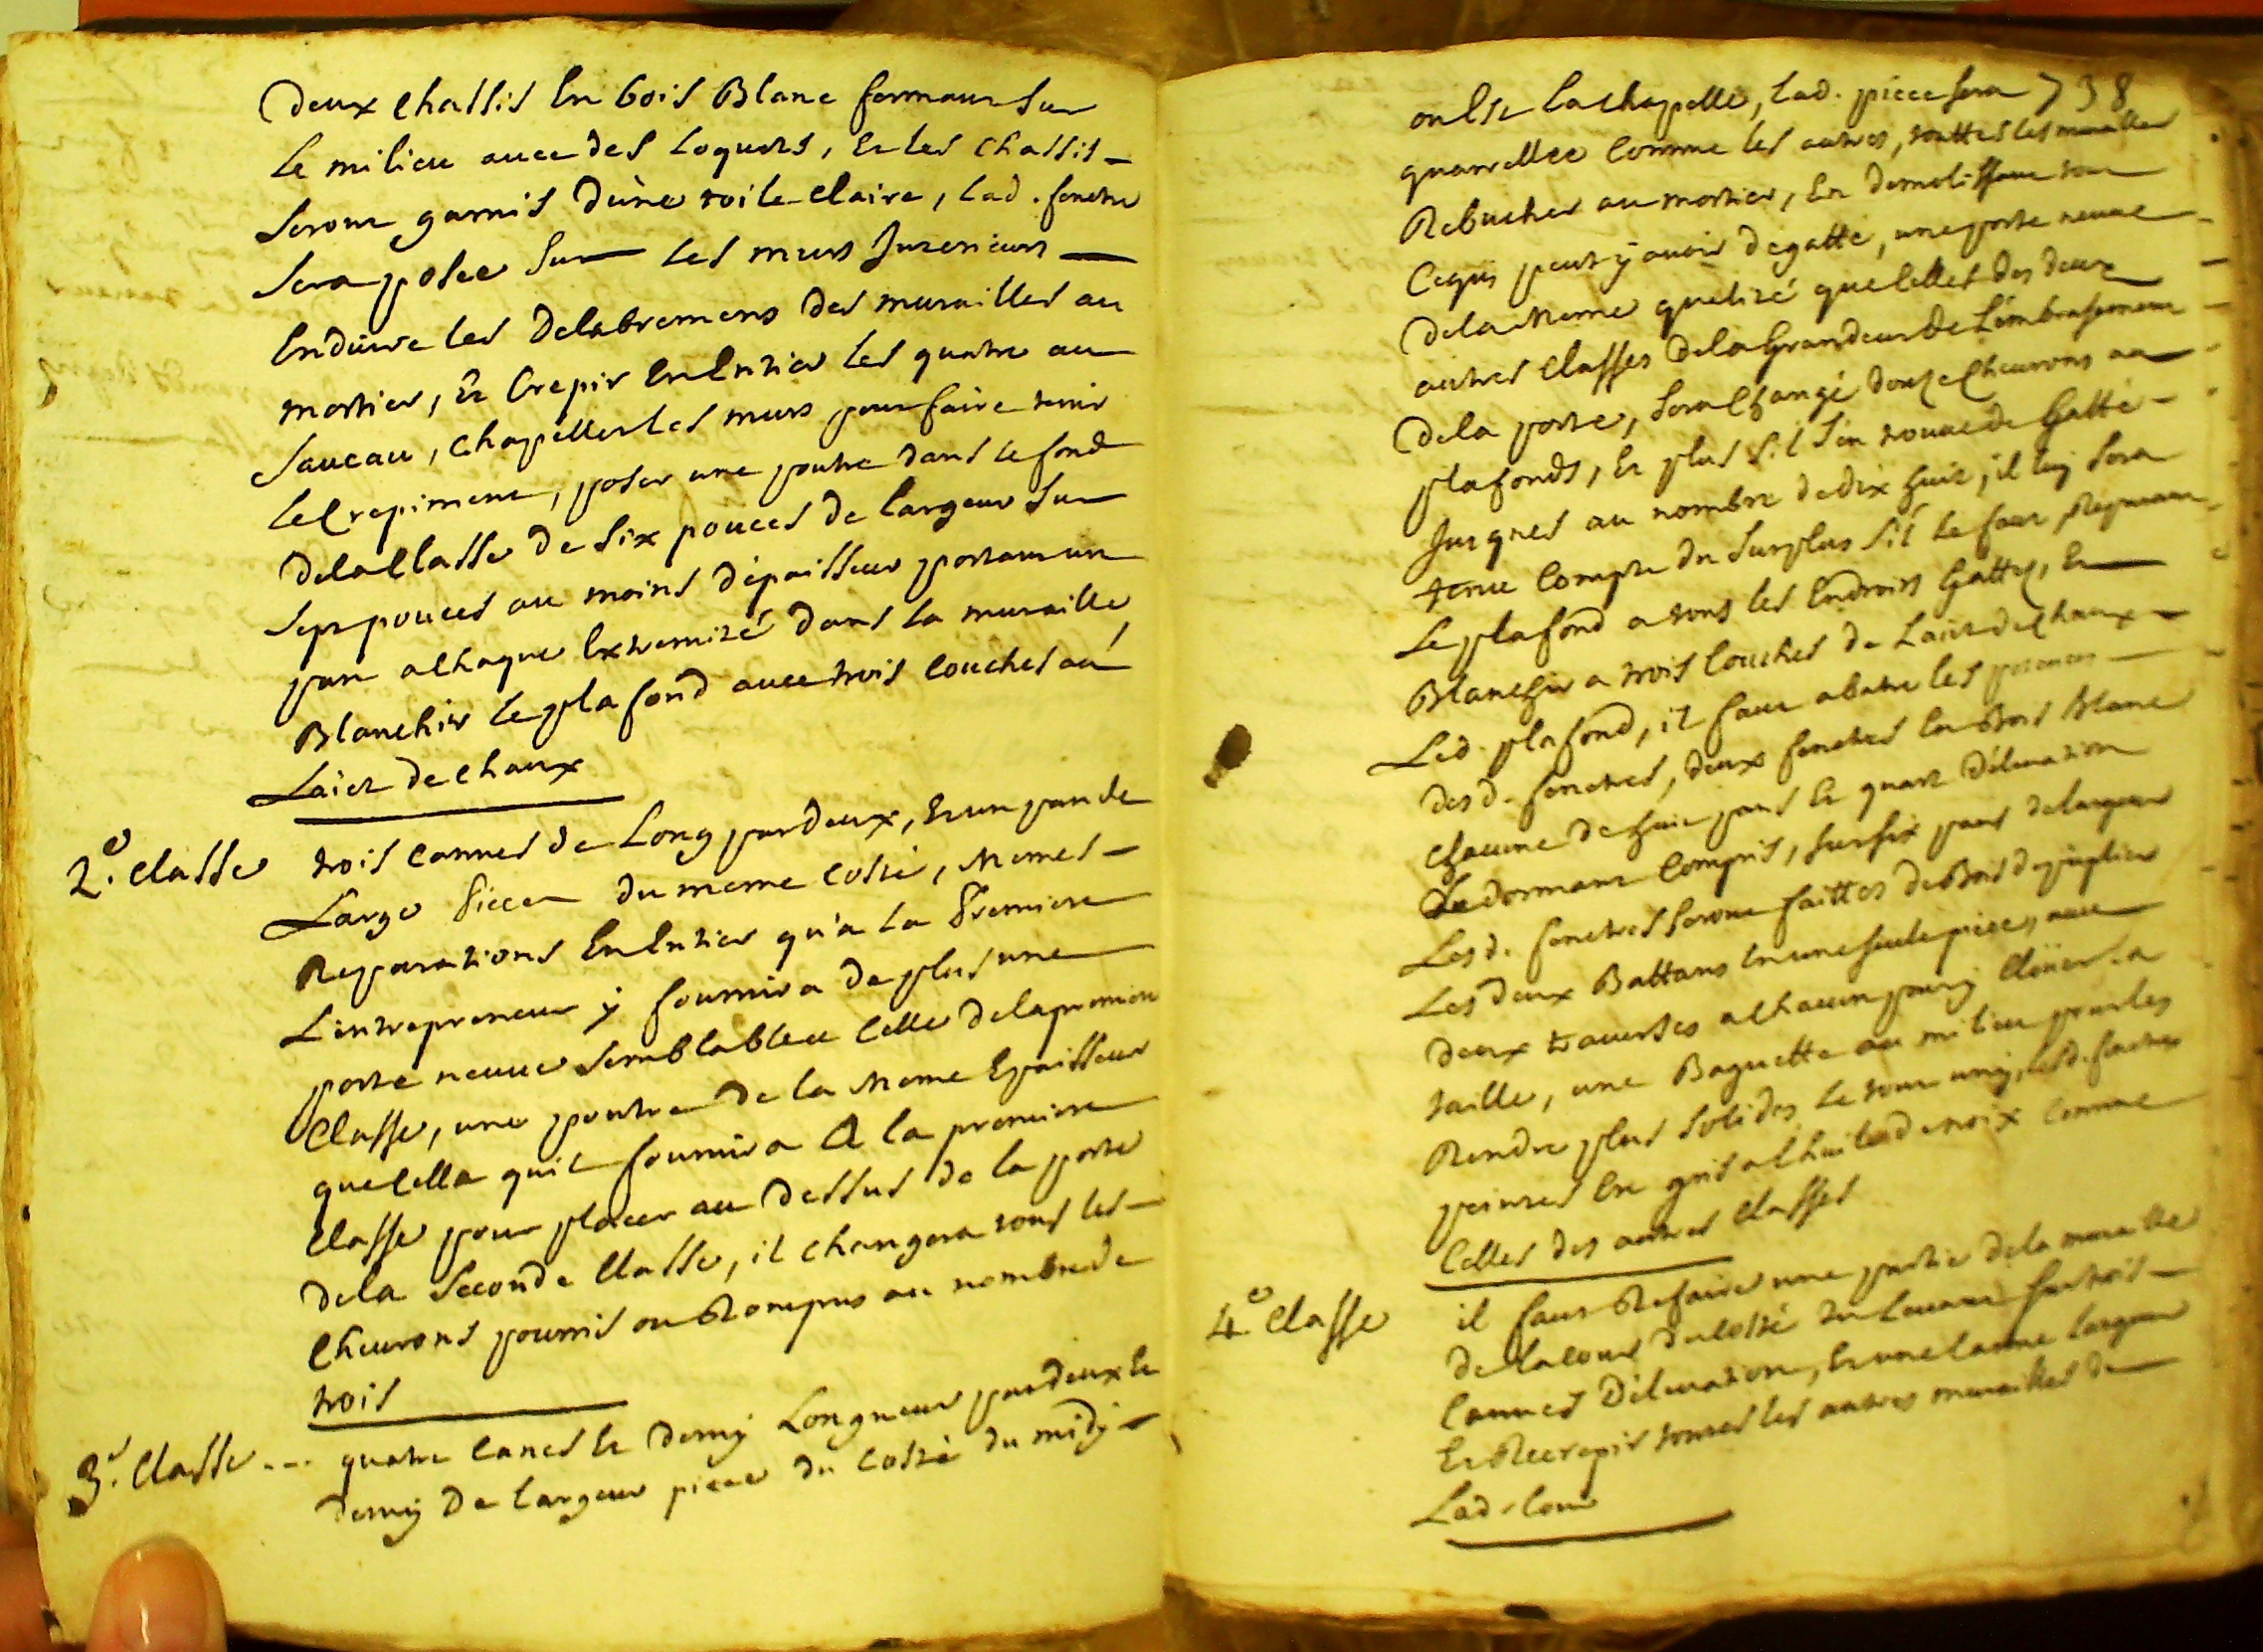 Deux chassis En bois Blanc fermant sur
Le milieu avec des loquets, Et les chassis -
seront garnis d'une toile claire, Lad. fenetre
sera posée sur les murs Interieurs
Enduire les Delabremens des murailles au
mortier, Et Crepir En Entier les quatre au
, chapeller les murs pour faire tenir
le Crepiment, poser une poutre dans le fond
de la Classe de six pouces de largeur sur
sept pouces au moins d'épaisseur portant un
pan a Chaque Extremité dans la muraille,
Blanchir le plafond avec trois couches au
Laict de chaux
2.e Classe trois cannes de Long par deux, Et un pan de
Large Piece du meme costé, memes -
Reparations En Entier qu'a la Premiere
L'entrepreneur ÿ fournira de plus une
porte neuve semblable a Celle de la premiere
Classe, une poutre de la meme Epaisseur
que Celle qu'il fournira a la premiere
Classe pour placer au dessus de la porte
de la seconde Classe, il changera tous les -
Cheurons pourris ou Rompus au nombre de
trois
3.e Classe --- quatre canes Et demÿ Longueur par deux Et
demÿ De largeur piece du Costé du midÿ -
ou Est La chapelle, Lad. piece sera 738
quarrellée Comme les autres, touttes les murailles
Rebuchés au mortier, En demolissant tout
Ce qui peut ÿ avoir de gatté, une porte neuve
de la meme qualité que Celles des deux
autres Classes de la Grandeur de L'embrasement
de la porte, sera Changé douze Cheurons au
plafonds, Et plus s'il s'en trouve de Gatté -
Jusques au nombre de dix huit, il luÿ sera
tenu Compte du surplus s'il Le faut,
Le plafond a tous les Endroits Gattés, Et
Blanchir a trois Couches de Laict de Chaux -
Led. plafond, il faut abatre les
desd. fenetres, deux fenetres En Bois Blanc
Chacune de huit pans Et quart d'élevation
Le dormant Compris, sur six pans de largeur
Lesd. fenetres seront faittes de Bois de
Les deux Battans En une seule piece, avec
deux traverses a Chacun pour ÿ Clouer la
taille, une Baguette au milieu pour les
Rendre plus solides, Le tout unÿ, Lesd. fenetres
peintes En gris a Lhuile de noix Comme
Celles des autres Classes
4.e Classe il faut Refaire une partie de la muraille
de la Cour du Costé du Levant sur trois -
Cannes d'élevation, Et une Canne largeur
Et Recrepir toutes les autres murailles de
Lad. Cour